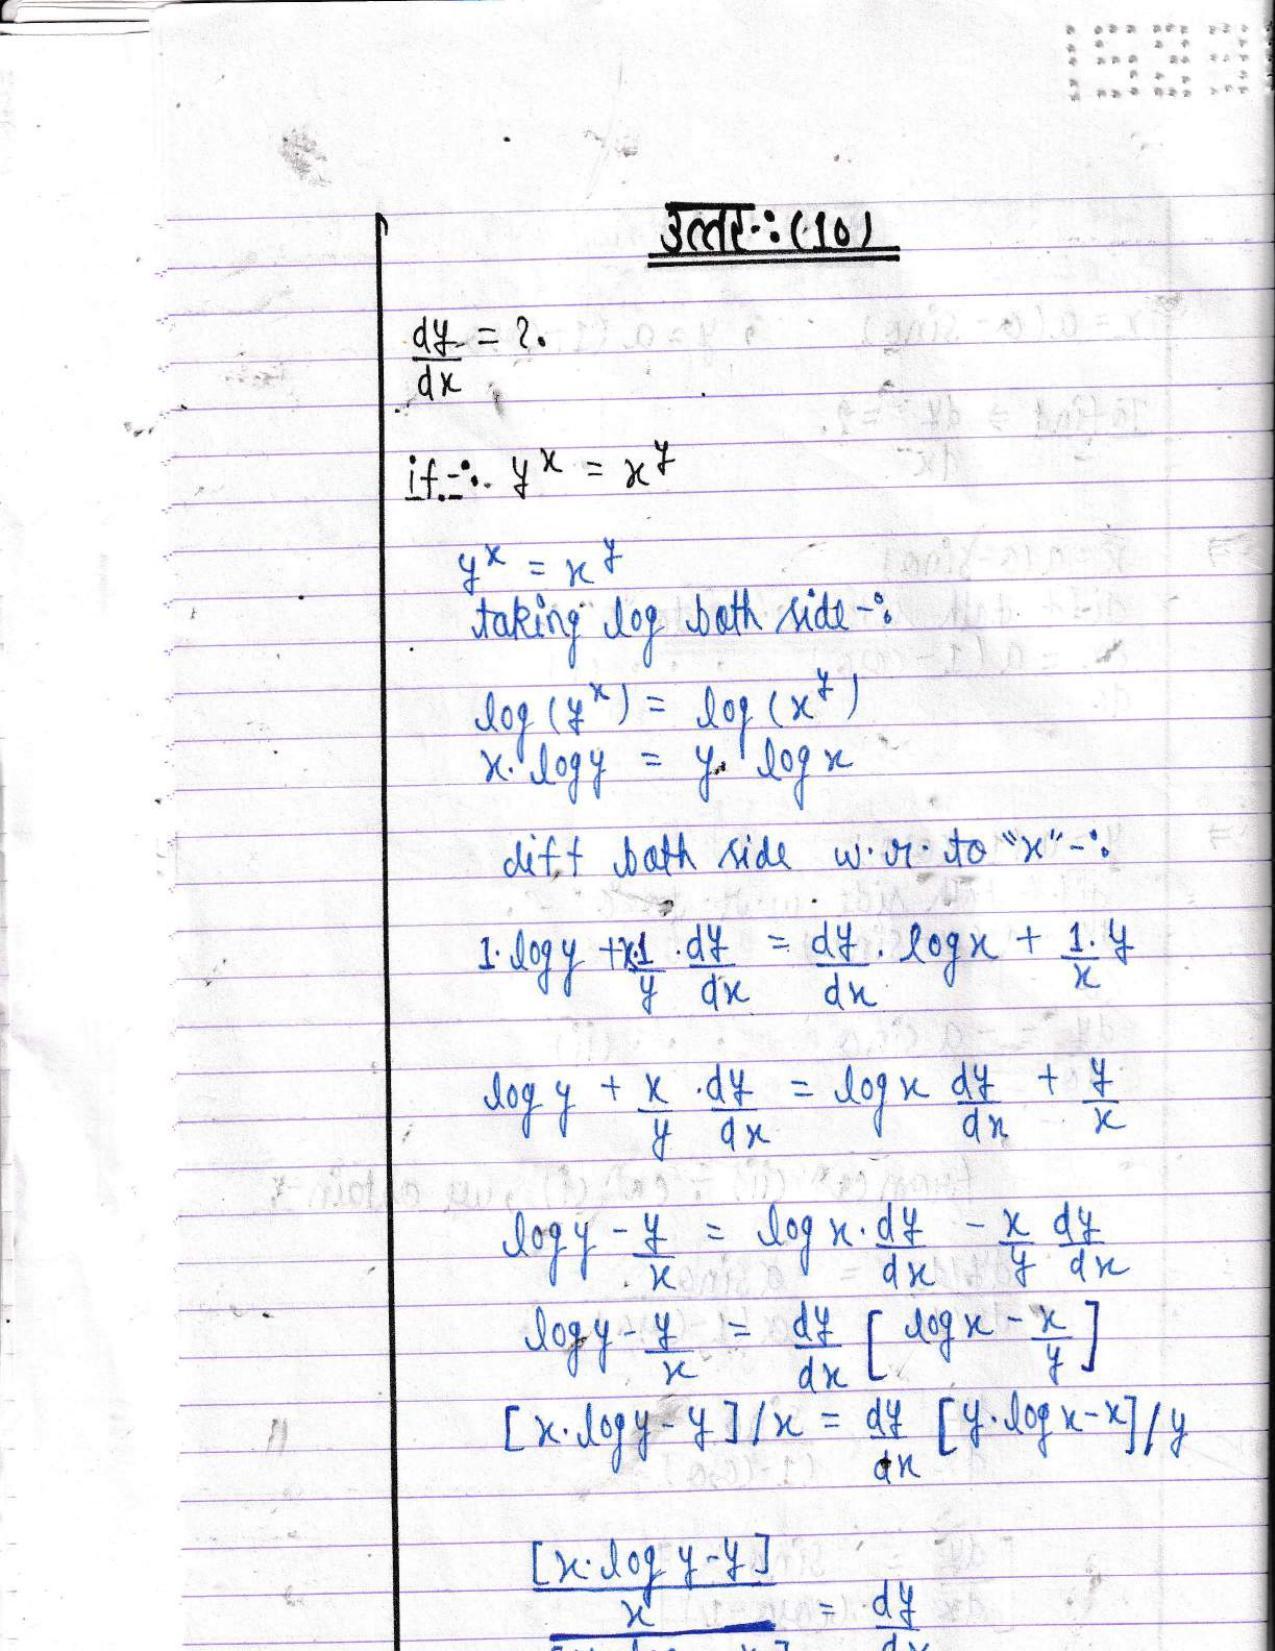 उत्तर-:(10)
dy/dx = ?.
if-:. y^x = x^y
y^x = x^y
taking log both side-:
log(y^x) = log(x^y)
x. logy = y. log x
diff both side w.r.to "x"-:
1. logy + x.1/y . dy/dx = dy/dx . logx + 1/x . y
log y + x/y . dy/dx = log x dy/dx + y/x
logy - y/x = log x. dy/dx - x/y dy/dx
logy - y/x = dy/dx [ logx - x/y ]
[x. logy - y]/x = dy/dx [y. log x - x]/y
[x. log y - y]/x = dy/dx